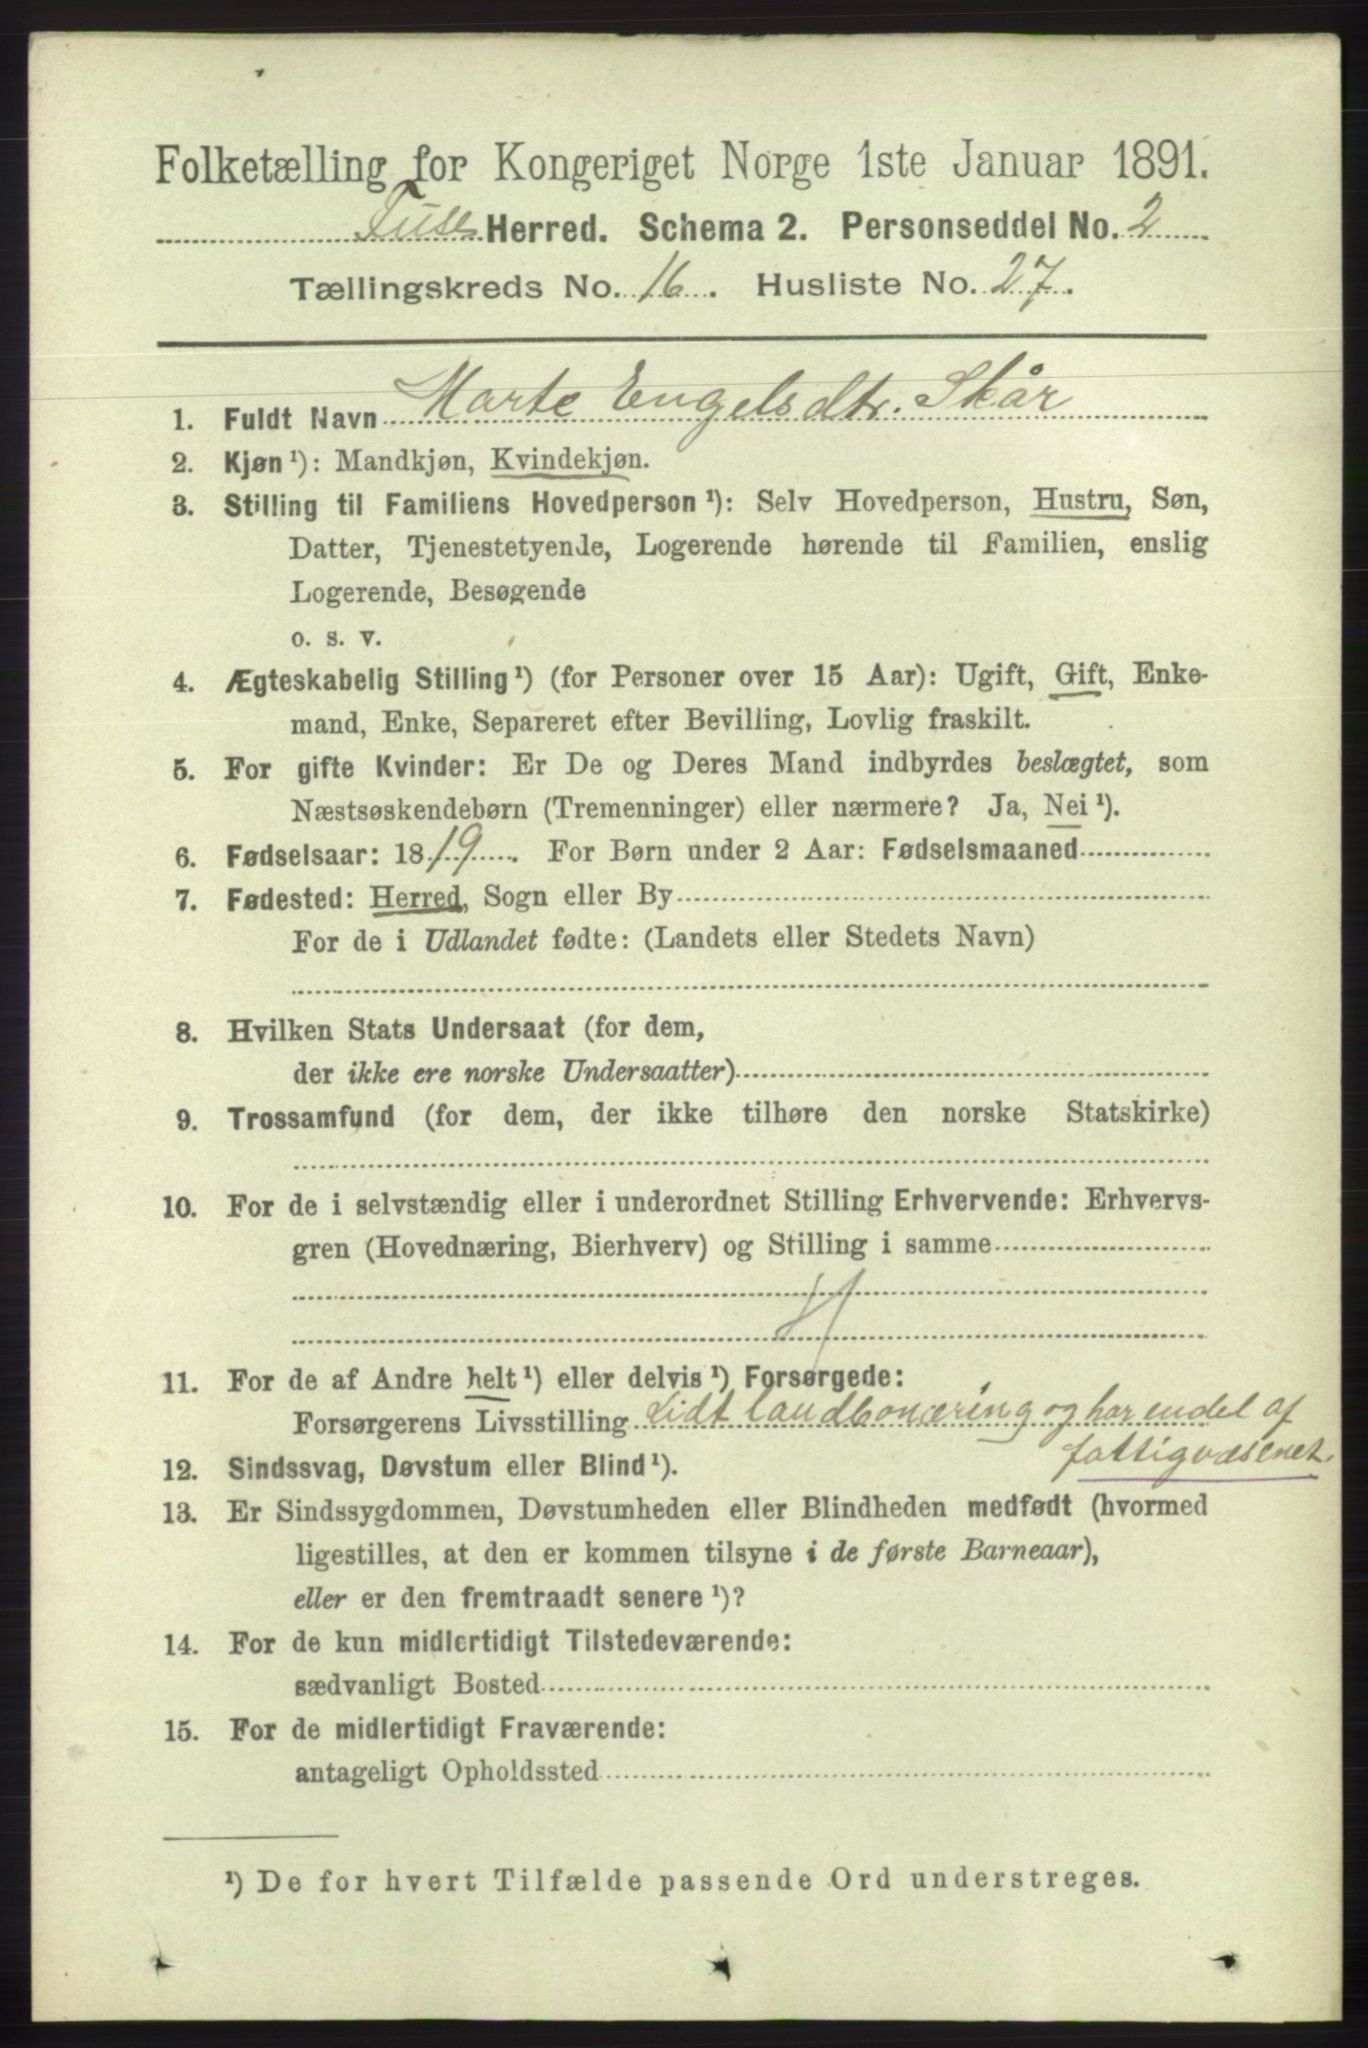 Folketælling for Kongeriget Norge 1ste Januar 1891.
Fuse Herred. Schema 2. Personseddel No. 2
Tællingskreds No. 16. Husliste No. 27.
1. Fuldt Navn Marte Engelsdtr. Skår
2. Kjøn ¹): Mandkjøn, Kvindekjøn.
3. Stilling til Familiens Hovedperson ¹): Selv Hovedperson, Hustru, Søn,
Datter, Tjenestetyende, Logerende hørende til Familien, enslig
Logerende, Besøgende
o. s. v.
4. Ægteskabelig Stilling ¹) (for Personer over 15 Aar): Ugift, Gift, Enke-
mand, Enke, Separeret efter Bevilling, Lovlig fraskilt.
5. For gifte Kvinder: Er De og Deres Mand indbyrdes beslægtet, som
Næstsøskendebørn (Tremenninger) eller nærmere? Ja, Nei ¹).
6. Fødselsaar: 1819. For Børn under 2 Aar: Fødselsmaaned
7. Fødested: Herred, Sogn eller By
For de i Udlandet fødte: (Landets eller Stedets Navn)
8. Hvilken Stats Undersaat (for dem,
der ikke ere norske Undersaatter)
9. Trossamfund (for dem, der ikke tilhøre den norske Statskirke)
10. For de i selvstændig eller i underordnet Stilling Erhvervende: Erhvervs-
gren (Hovednæring, Bierhverv) og Stilling i samme
11. For de af Andre helt ¹) eller delvis ¹) Forsørgede:
Forsørgerens Livsstilling Lidt landbonæring og har endel af
fattigvæsenet.
12. Sindssvag, Døvstum eller Blind ¹).
13. Er Sindssygdommen, Døvstumheden eller Blindheden medfødt (hvormed
ligestilles, at den er kommen tilsyne i de første Barneaar),
eller er den fremtraadt senere ¹)?
14. For de kun midlertidigt Tilstedeværende:
sædvanligt Bosted
15. For de midlertidigt Fraværende:
antageligt Opholdssted
¹) De for hvert Tilfælde passende Ord understreges.